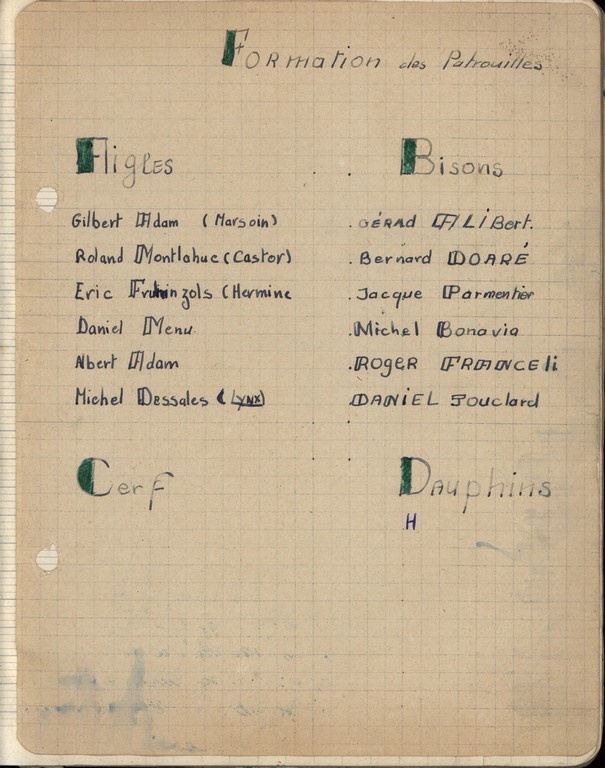 Formation des Patrouilles
Aigles
Gilbert Adam (Marsoin)
Roland Montlahuc (Castor)
Eric (Hermine
Daniel Menu
Albert Adam
Michel Dessales (Lynx)
Bisons
. GÉRAD ALiBert.
. Bernard DOARÉ
. Jacque Parmentier
. Michel Bonavia
. ROGER FRANCEli
DANiEL Jouclard
Cerf
Dauphins
H